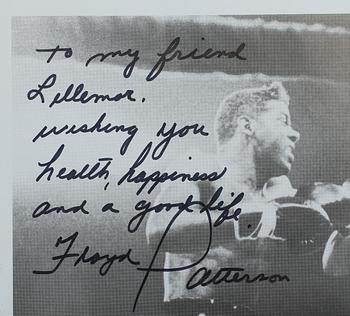 To my friend
Lillemor.
wishing you
health, happiness
and a good life.
Floyd Patterson